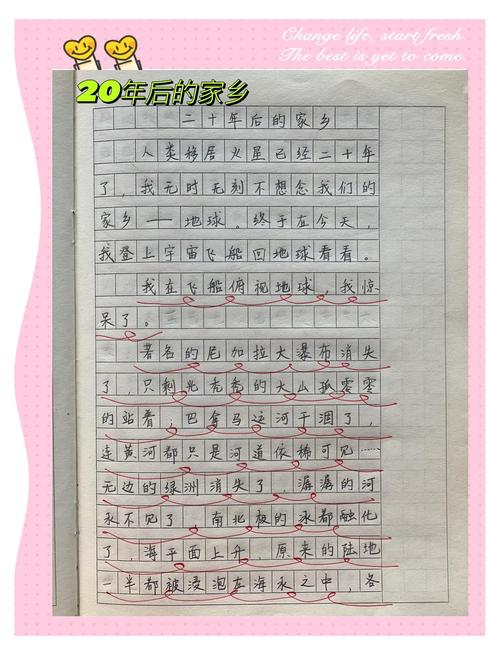 Change life, start fresh.
The best is yet to come.
20年后的家乡
二十年后的家乡
人类移居火星已经二十年
了，我无时无刻不想念我们的
家乡——地球。终于在今天，
我登上宇宙飞船回地球看看。
我在飞船俯视地球，我惊
呆了。
著名的尼加拉大瀑布消失
了，只剩光秃秃的大山孤零零
的站着，巴拿马运河干涸了，
连黄河都只是河道依稀可见……
无边的绿洲消失了，潺潺的河
水不见了，南北极的冰都融化
了，海平面上升，原来的陆地
一半都被浸泡在海水之中，各